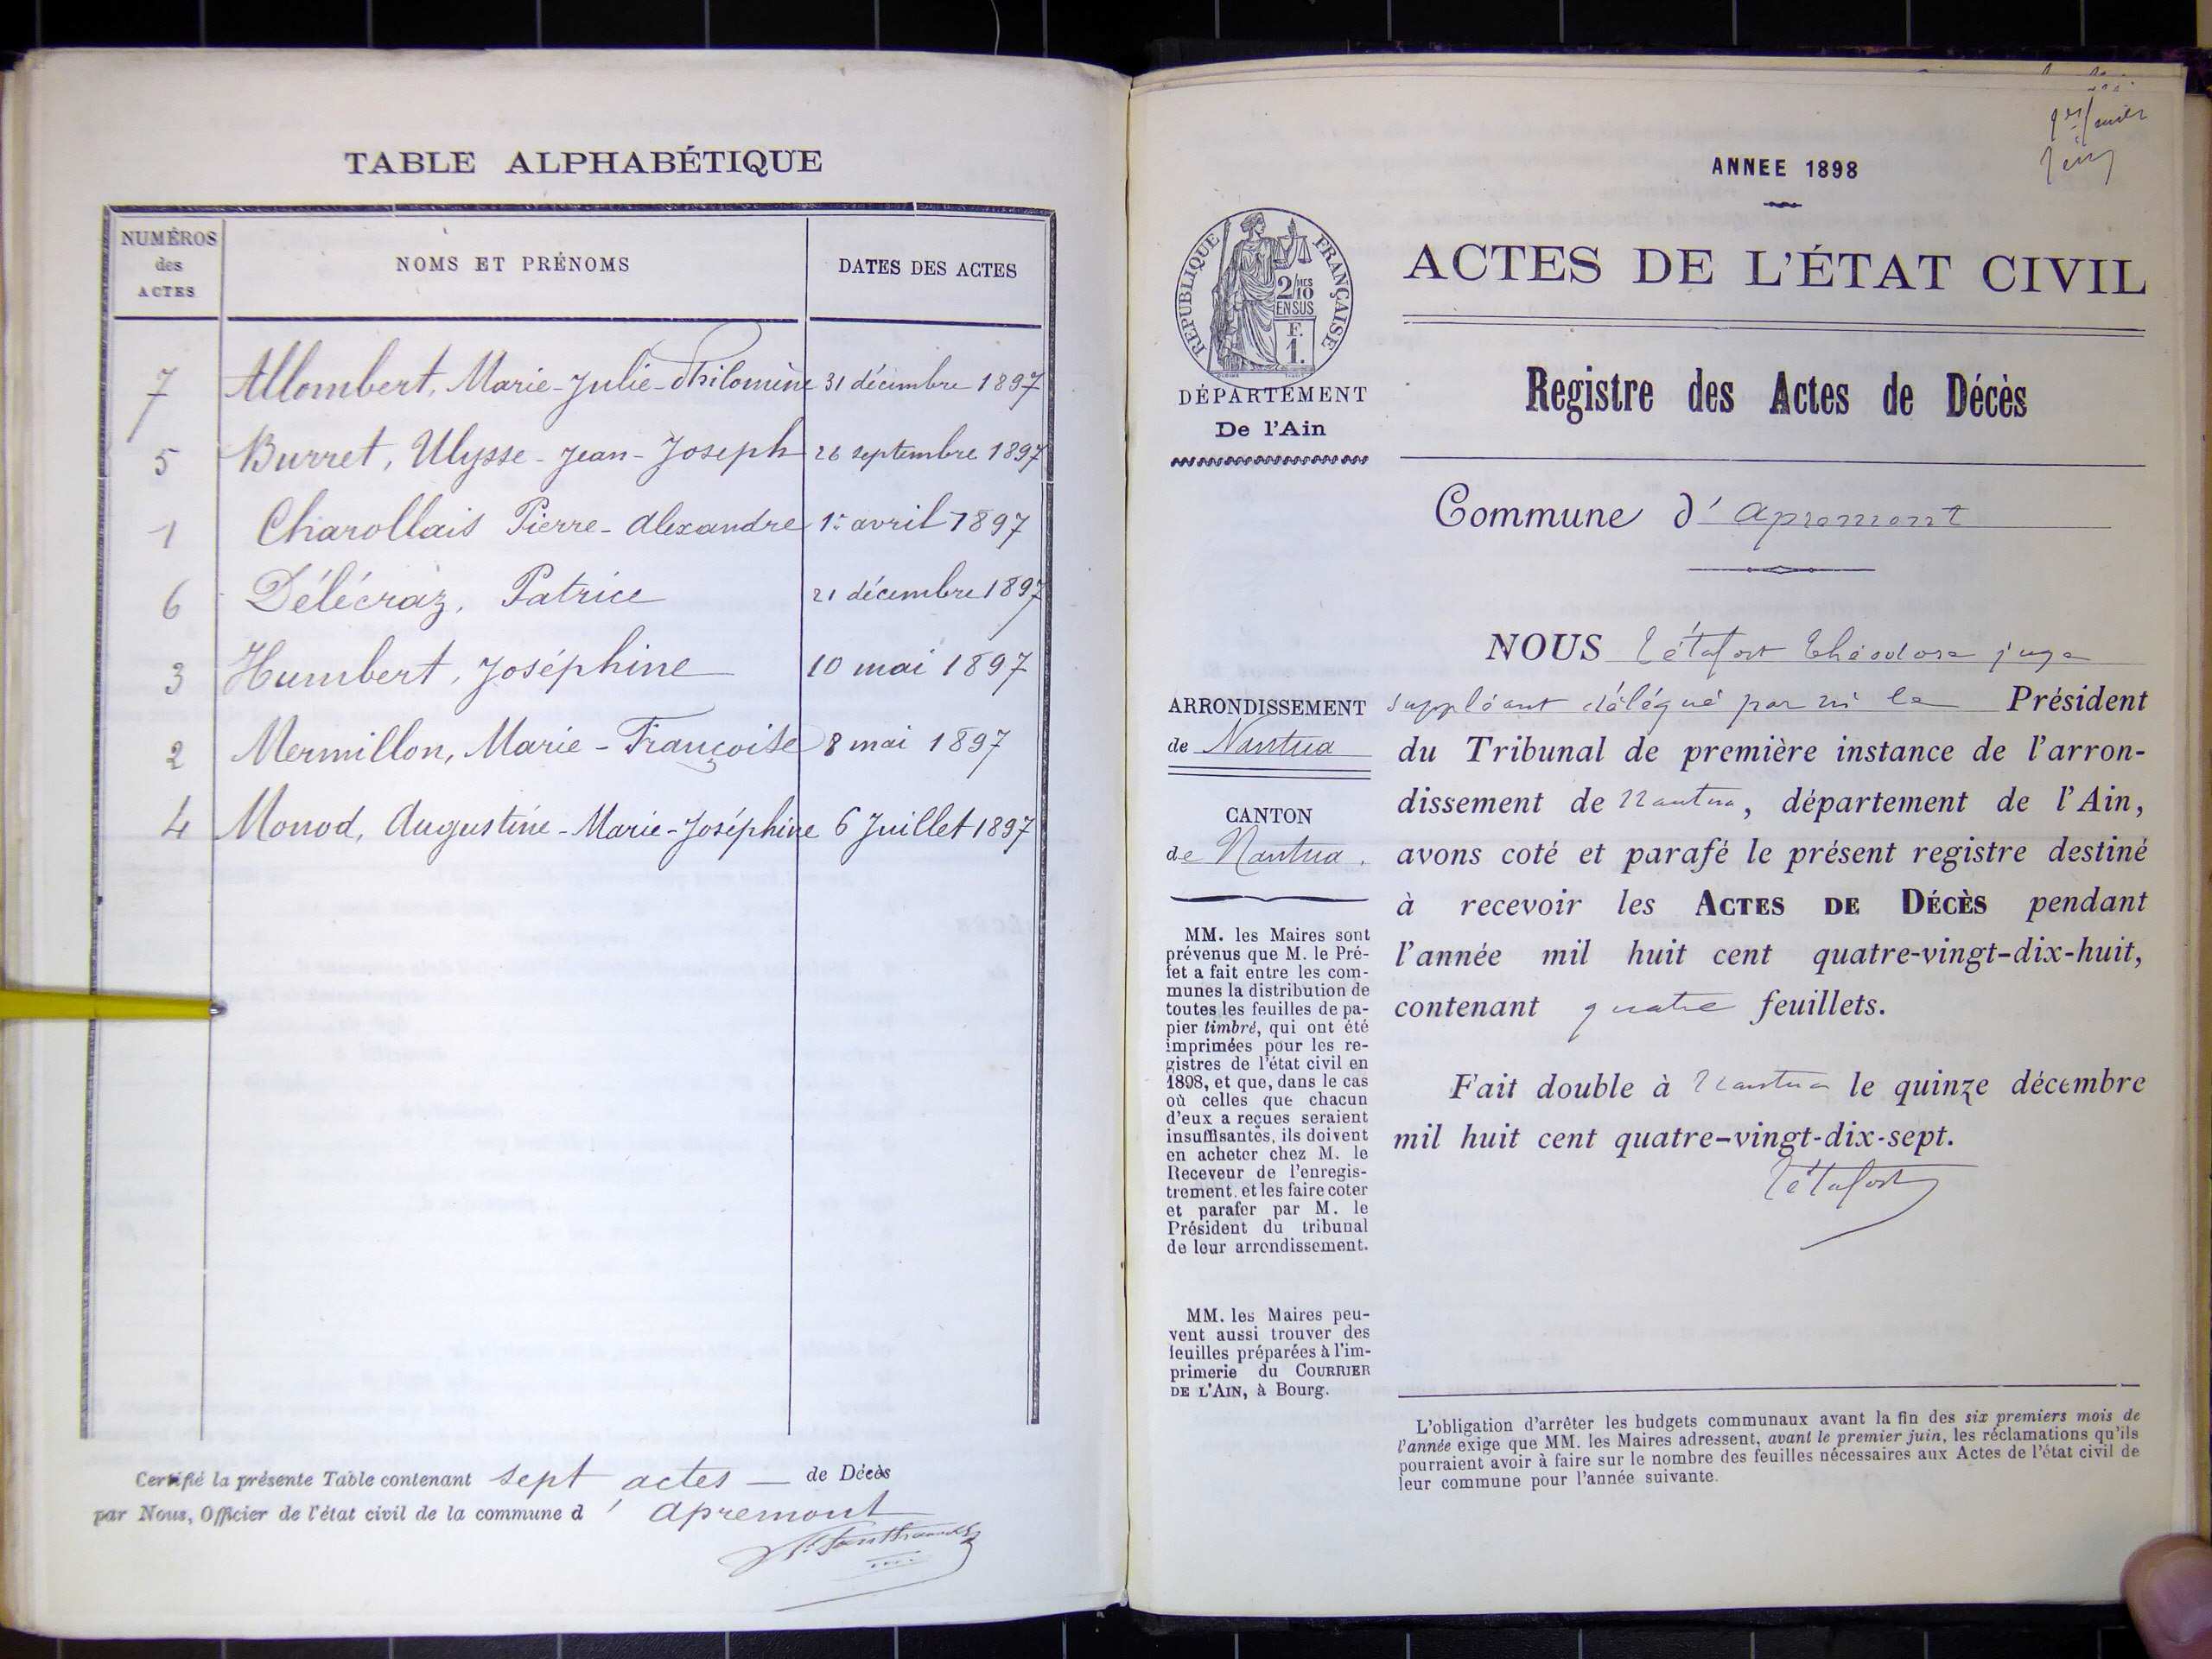 TABLE ALPHABÉTIQUE
NUMÉROS
des
ACTES
NOMS ET PRÉNOMS
DATES DES ACTES
7 Allombert, Marie-Julie-Philomène 31 décembre 1897
5 Burret, Ulysse-Jean-Joseph 26 septembre 1897
1 Charollais Pierre-Alexandre 1er avril 1897
6 Délécraz, Patrice 21 décembre 1897
3 Humbert, Joséphine 10 mai 1897
2 Mermillon, Marie-Françoise 8 mai 1897
4 Monod, Augustine-Marie-Joséphine 6 Juillet 1897
Certifié la présente Table contenant sept actes — de Décès
par Nous, Officier de l'état civil de la commune d' Apremont
ANNEE 1898
RÉPUBLIQUE FRANÇAISE
2/10 DES
EN SUS
F.
1.
ACTES DE L'ÉTAT CIVIL
DÉPARTEMENT
De l'Ain
Registre des Actes de Décès
Commune d' Apremont
ARRONDISSEMENT
de Nantua
CANTON
de Nantua.
MM. les Maires sont
prévenus que M. le Pré-
fet a fait entre les com-
munes la distribution de
toutes les feuilles de pa-
pier timbré, qui ont été
imprimées pour les re-
gistres de l'état civil en
1898, et que, dans le cas
où celles que chacun
d'eux a reçues seraient
insuffisantes, ils doivent
en acheter chez M. le
Receveur de l'enregis-
trement, et les faire coter
et parafer par M. le
Président du tribunal
de leur arrondissement.
MM. les Maires peu-
vent aussi trouver des
feuilles préparées à l'im-
primerie du COURRIER
DE L'AIN, à Bourg.
NOUS Tétafort Théodore juge
suppléant délégué par m le Président
du Tribunal de première instance de l'arron-
dissement de Nantua, département de l'Ain,
avons coté et parafé le présent registre destiné
à recevoir les ACTES DE DÉCÈS pendant
l'année mil huit cent quatre-vingt-dix-huit,
contenant quatre feuillets.
Fait double à Nantua le quinze décembre
mil huit cent quatre-vingt-dix-sept.
Tétafort
L'obligation d'arrêter les budgets communaux avant la fin des six premiers mois de
l'année exige que MM. les Maires adressent, avant le premier juin, les réclamations qu'ils
pourraient avoir à faire sur le nombre des feuilles nécessaires aux Actes de l'état civil de
leur commune pour l'année suivante.